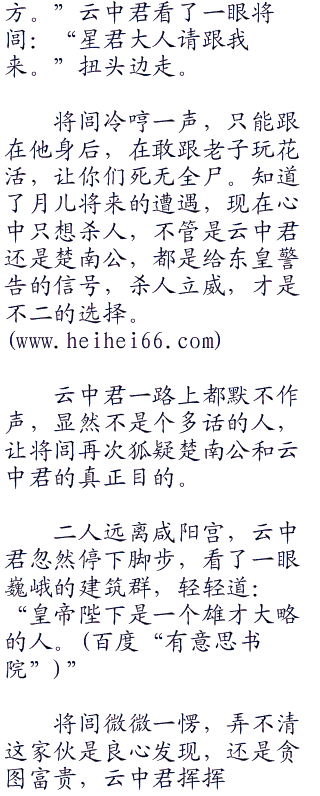 方。”云中君看了一眼将
闾：“星君大人请跟我
来。”扭头边走。
将闾冷哼一声，只能跟
在他身后，在敢跟老子玩花
活，让你们死无全尸。知道
了月儿将来的遭遇，现在心
中只想杀人，不管是云中君
还是楚南公，都是给东皇警
告的信号，杀人立威，才是
不二的选择。
(www.heihei66.com)
云中君一路上都默不作
声，显然不是个多话的人，
让将闾再次狐疑楚南公和云
中君的真正目的。
二人远离咸阳宫，云中
君忽然停下脚步，看了一眼
巍峨的建筑群，轻轻道：
“皇帝陛下是一个雄才大略
的人。(百度“有意思书
院”)”
将闾微微一愣，弄不清
这家伙是良心发现，还是贪
图富贵，云中君挥挥